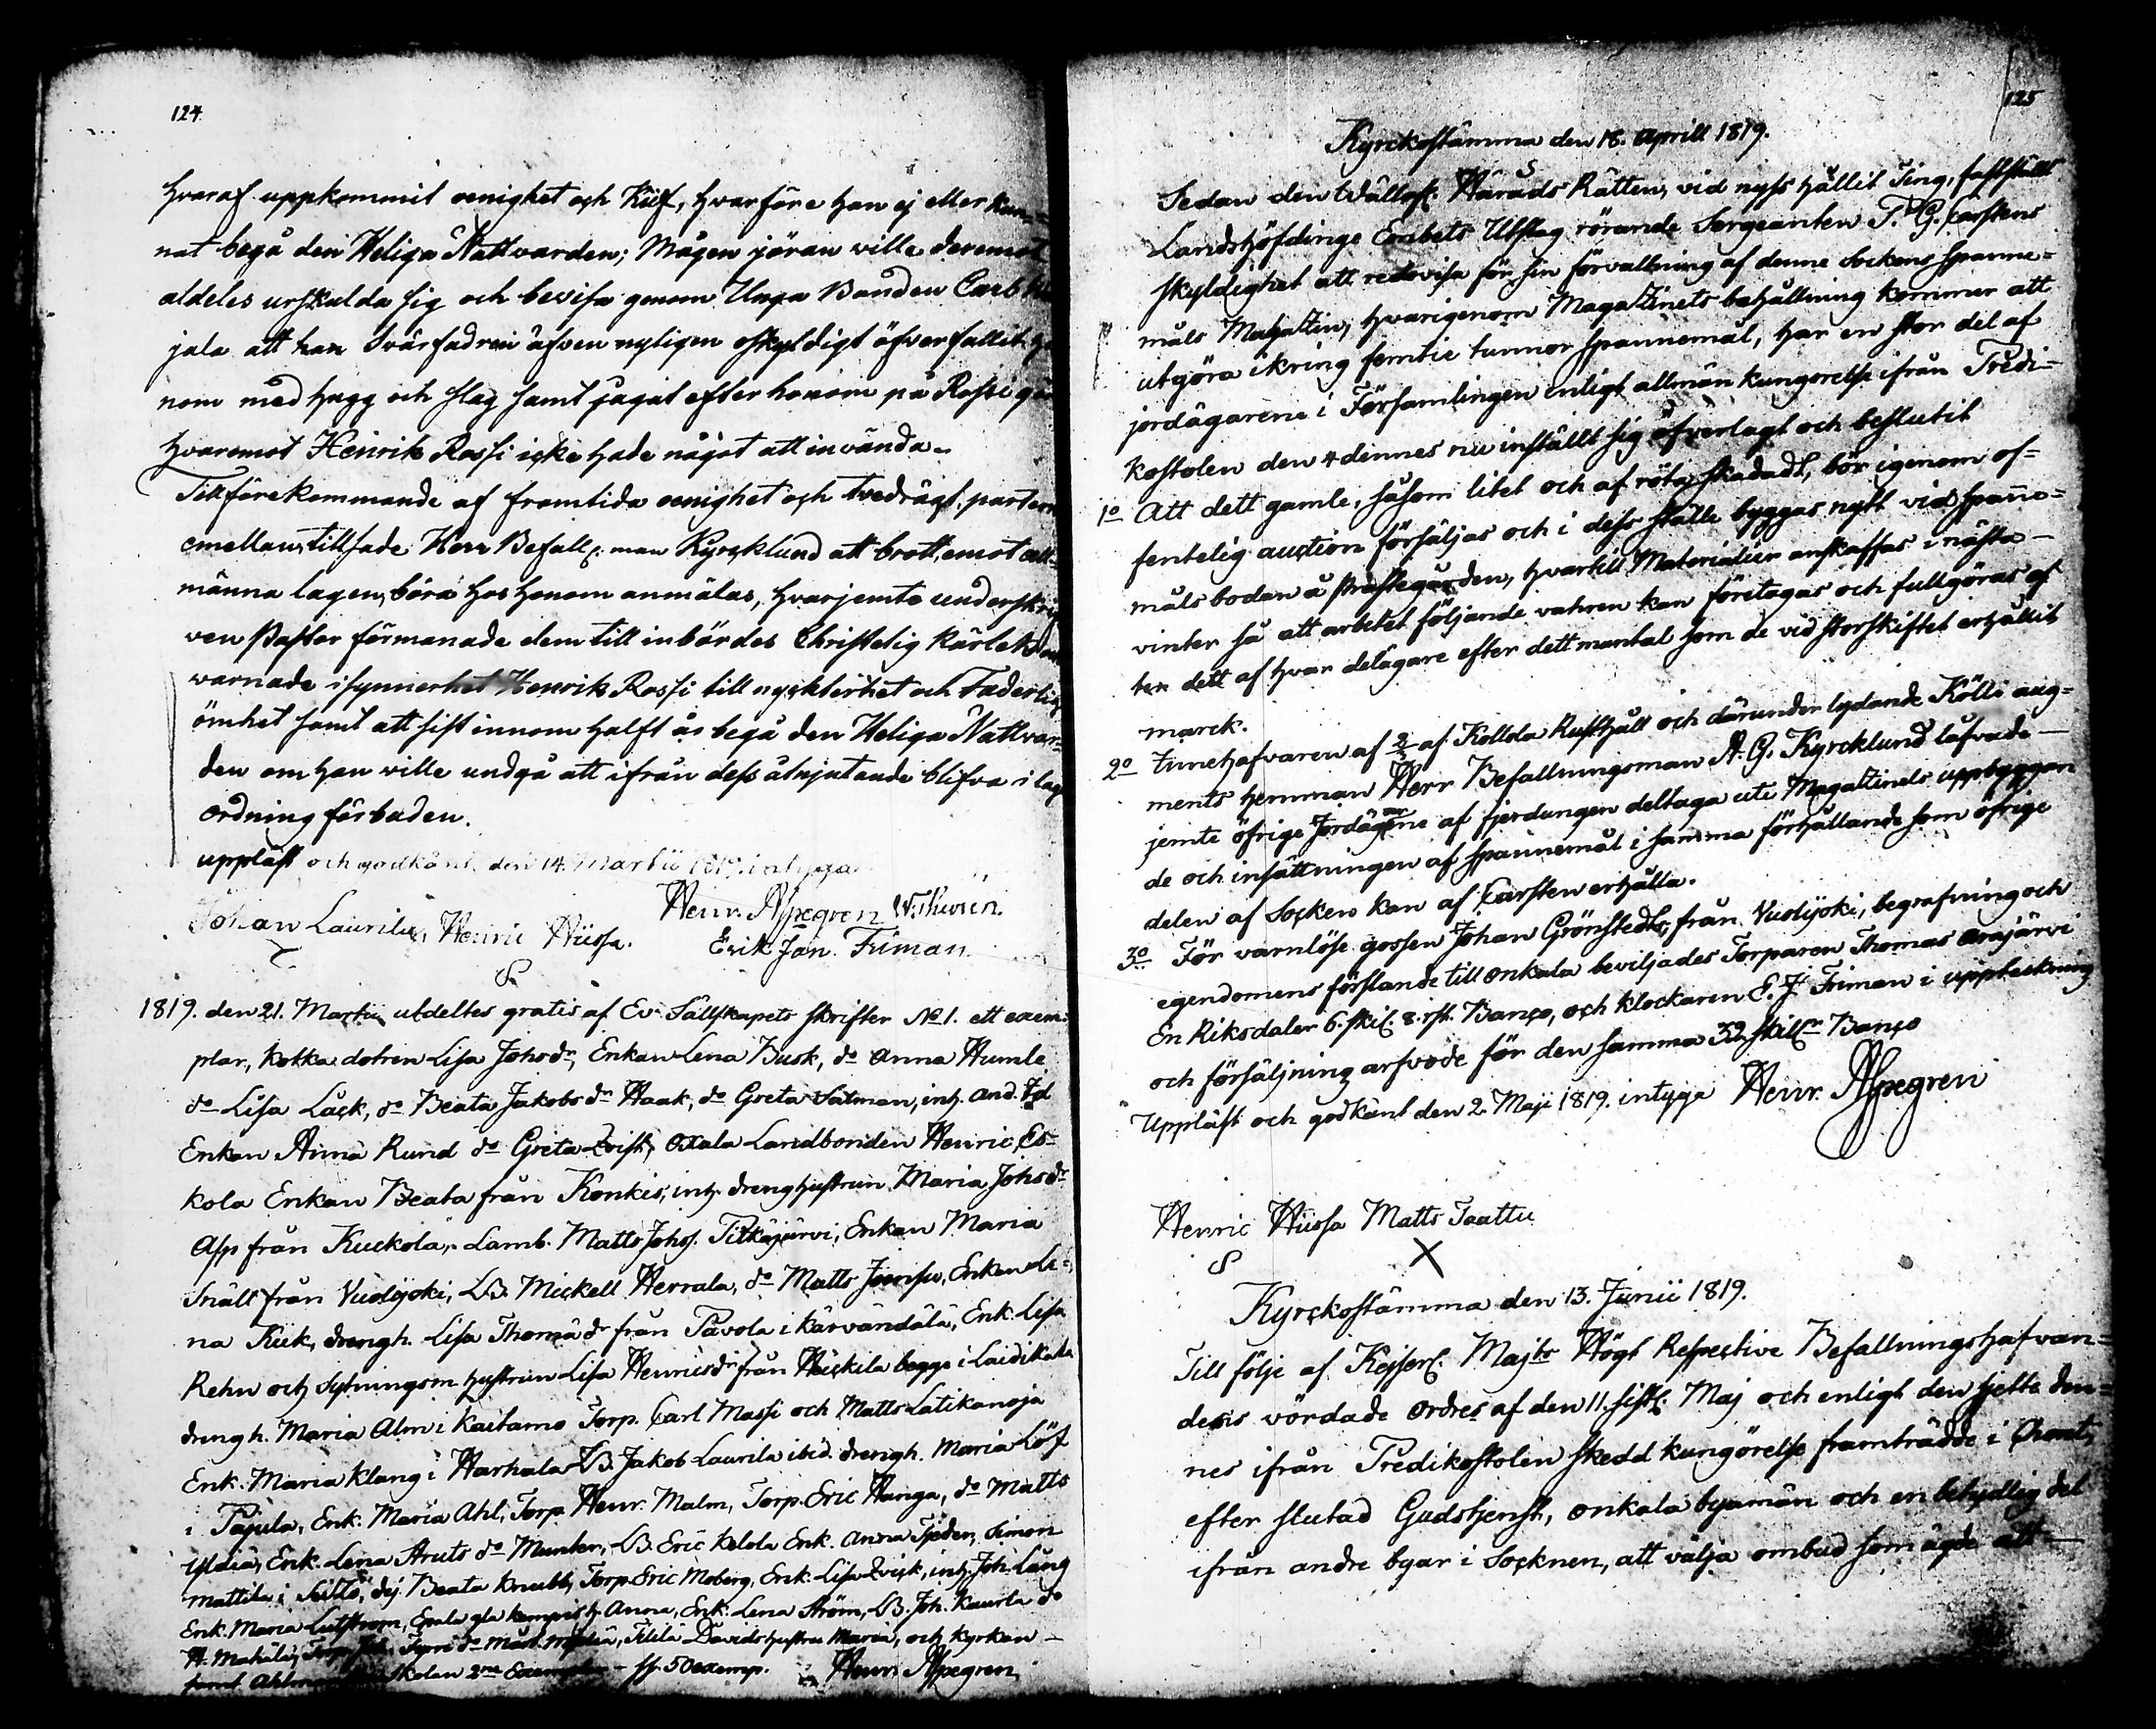 124
hvaraf uppkommit oenighet och Kiif, hvarföre han ej eller kun-
nat begå den Heliga Nattvarden; Mågen Jöran ville deremot
aldeles urskulda sig och bevisa genom Unga Bonden Carl
jala att han Svärfadren äfven nyligen oskyldigt öfverfallit ho
nom med hugg och slag samt jagat efter honom på Rossi går
hvaremot Henrik Rossi icke hade något att invända.
Till förekommande af framtida oenighet och tvedrägt parterne
emellan, tillsade Herr Befall: man Kyrcklund att brott, emot all-
männa lagen, böra hos honom anmälas, hvarjemte underskrif
ven Pastor förmanade dem till inbördes Christelig kärlek och
varnade isynnerhet Henrik Rossi till nyckterhet och Faderlig
ömhet samt att sist innom halft år begå den Heliga Nattvar-
den om han ville undgå att ifrån dess åtnjutande blifva i lag
ordning förbuden.
uppläst och godkänt den 14. Martii 1819. intyga
Henr. Aspegren W. Thurén.
Johan Laurila, Henric Hiissa. Erik Joh. Friman
1819. den 21. Martii utdeltes gratis af Ev. Sällskapets skrifter No 1. ett exem-
plar, Kokka dotren Lisa Johsdr, Enkan Lena Busk, do Anna Humle
do Lisa Läck, do Beata Jakobsdr Haak, do Greta Salman, inh. And.
Enkan Anna Rund do Greta Qvist, Oxala Landbonden Henric, Es-
kola Enkan Beata från Konkis, inh. drenghustrun Maria Johsdr
Asp från Kuckola, Lamb. Matts Johss. Pitkäjärvi, Enkan Maria
Snält från Vuolijoki, LB. Mickell Herrala, do Matts Jounsu, Enkan Le-
na Kiik, drengh. Lisa Thomädr från Pavola i Kärvändälä, Enk. Lisa
Rehn och Sytningsm hustrun Lisa Henricsdr från Heickila begge i Laidikala
drengh. Maria Alm i Kaitamo Torp. Carl Massi och Matts Latikanoja
Enk. Maria Klang i Harhala LB. Jakob Laurila ibid. drengh. Maria Löf
i Pajula, Enk. Maria Ahl, Torp. Henr. Malm, Torp. Eric Hanga, do Matts
Yldiä, Enk. Lena Struts do Munter, LB. Eric Kelola Enk. Anna Tjäder, Simon
Mattila i Sutto, dej. Beata Knubb, Torp. Eric Moberg, Enk. Lisa Qvick, inh. Joh. Lång
Enk. Maria Lutström, Anna, Enk. Lena Ström, LB. Joh. Kaurla do
H. Mahäla, Davids hustru Maria, och kyrkan
Skolan 2ne Exemplar - ss. 50 exemp. Henr. Aspegren
125
Kyrckostämma den 18. Aprill 1819.
Sedan den Wällofl. Härads Rätten, vid nyss hållit Ting, fastställt
Landshöfdinge Embets Utslag rörande Sergeanten T. G. Carstens
skyldighet att redovisa för sin förvaltning af denne Sockens Spanne-
måls Magazin, hvarigenom Magazinets behållning kommer att
utgöra ikring femtie tunnor Spannemål, har en stor del af
jordägarene i Församlingen enligt allmän kungörelse ifrån Predi-
kostolen den 4 dennes nu inställt sig öfverlagt och beslutit
1o Att dett gamle, såsom litet och af röta skadadt, bör igenom of-
fentelig auction försäljas och i dess ställe byggas nytt vid Spanne-
måls bodan å Prästegården, hvartill Materialier anskaffas i nästa
vinter så att arbetet följande vahren kan företagas och fullgöras af
ten dett af hvar delägare efter dett mantal som de vid storskiftet erhållit
marck.
2o Innehafvaren af 2/3 af Kollola Rusthåll och därunder lydande Kölli aug-
ments hemman Herr Befallningsman A. G. Kyrcklund låfvade
jemte öfrige Jordägarne af fjerdungen deltaga uti Magazinets uppbyggan
de och insättningen af Spannemål i samma förhållande som öfrige
delen af Socken kan af Carsten erhålla.
3o För varnlöse gossen Johan Grönstedts från Vuolijoki, begrafning och
egendomens förslande till Onkala beviljades Torparen Thomas Orajärvi
En Riksdaler 6. skil. 8. rst. Banco, och klockaren E. J. Friman i uppteckning
och försäljning arfvode för den samma 32 skillr Banco
Uppläst och godkänt den 2. Maji 1819. intyga Henr. Aspegren
Henric Hiissa Matts Taattu
X
Kyrckostämma den 13. Junii 1819.
Till följe af Kejserl. Majts Högt Respective Befallningshafvan-
desis vördade ordres af den 11. sistl. Maj och enligt den sjette den-
nes ifrån Predikostolen skedd kungörelse framträdde i Choret,
efter slutad Gudstjenst, Onkala byamän och en betydlig del
ifrån andre byar i Socknen, att välja ombud som ägde att